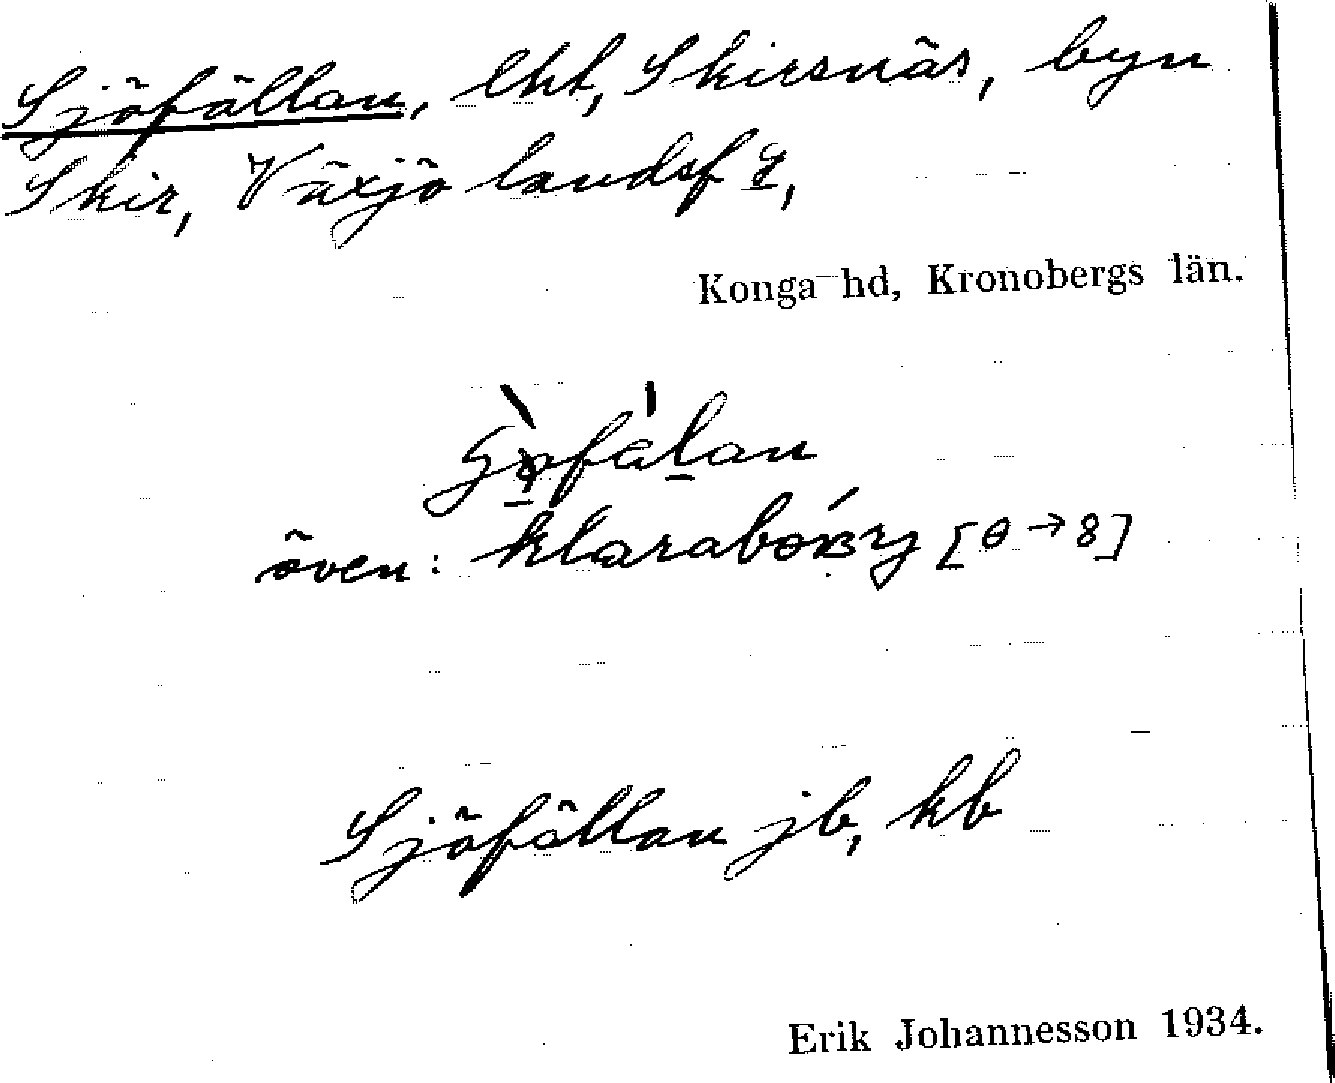 Sjöfällan, lht, Skirsnäs, byn
Skir, Växjö landsf g,
Konga hd, Kronobergs län.
även:
Sjöfällan jb, kb
Erik Johannesson 1934.